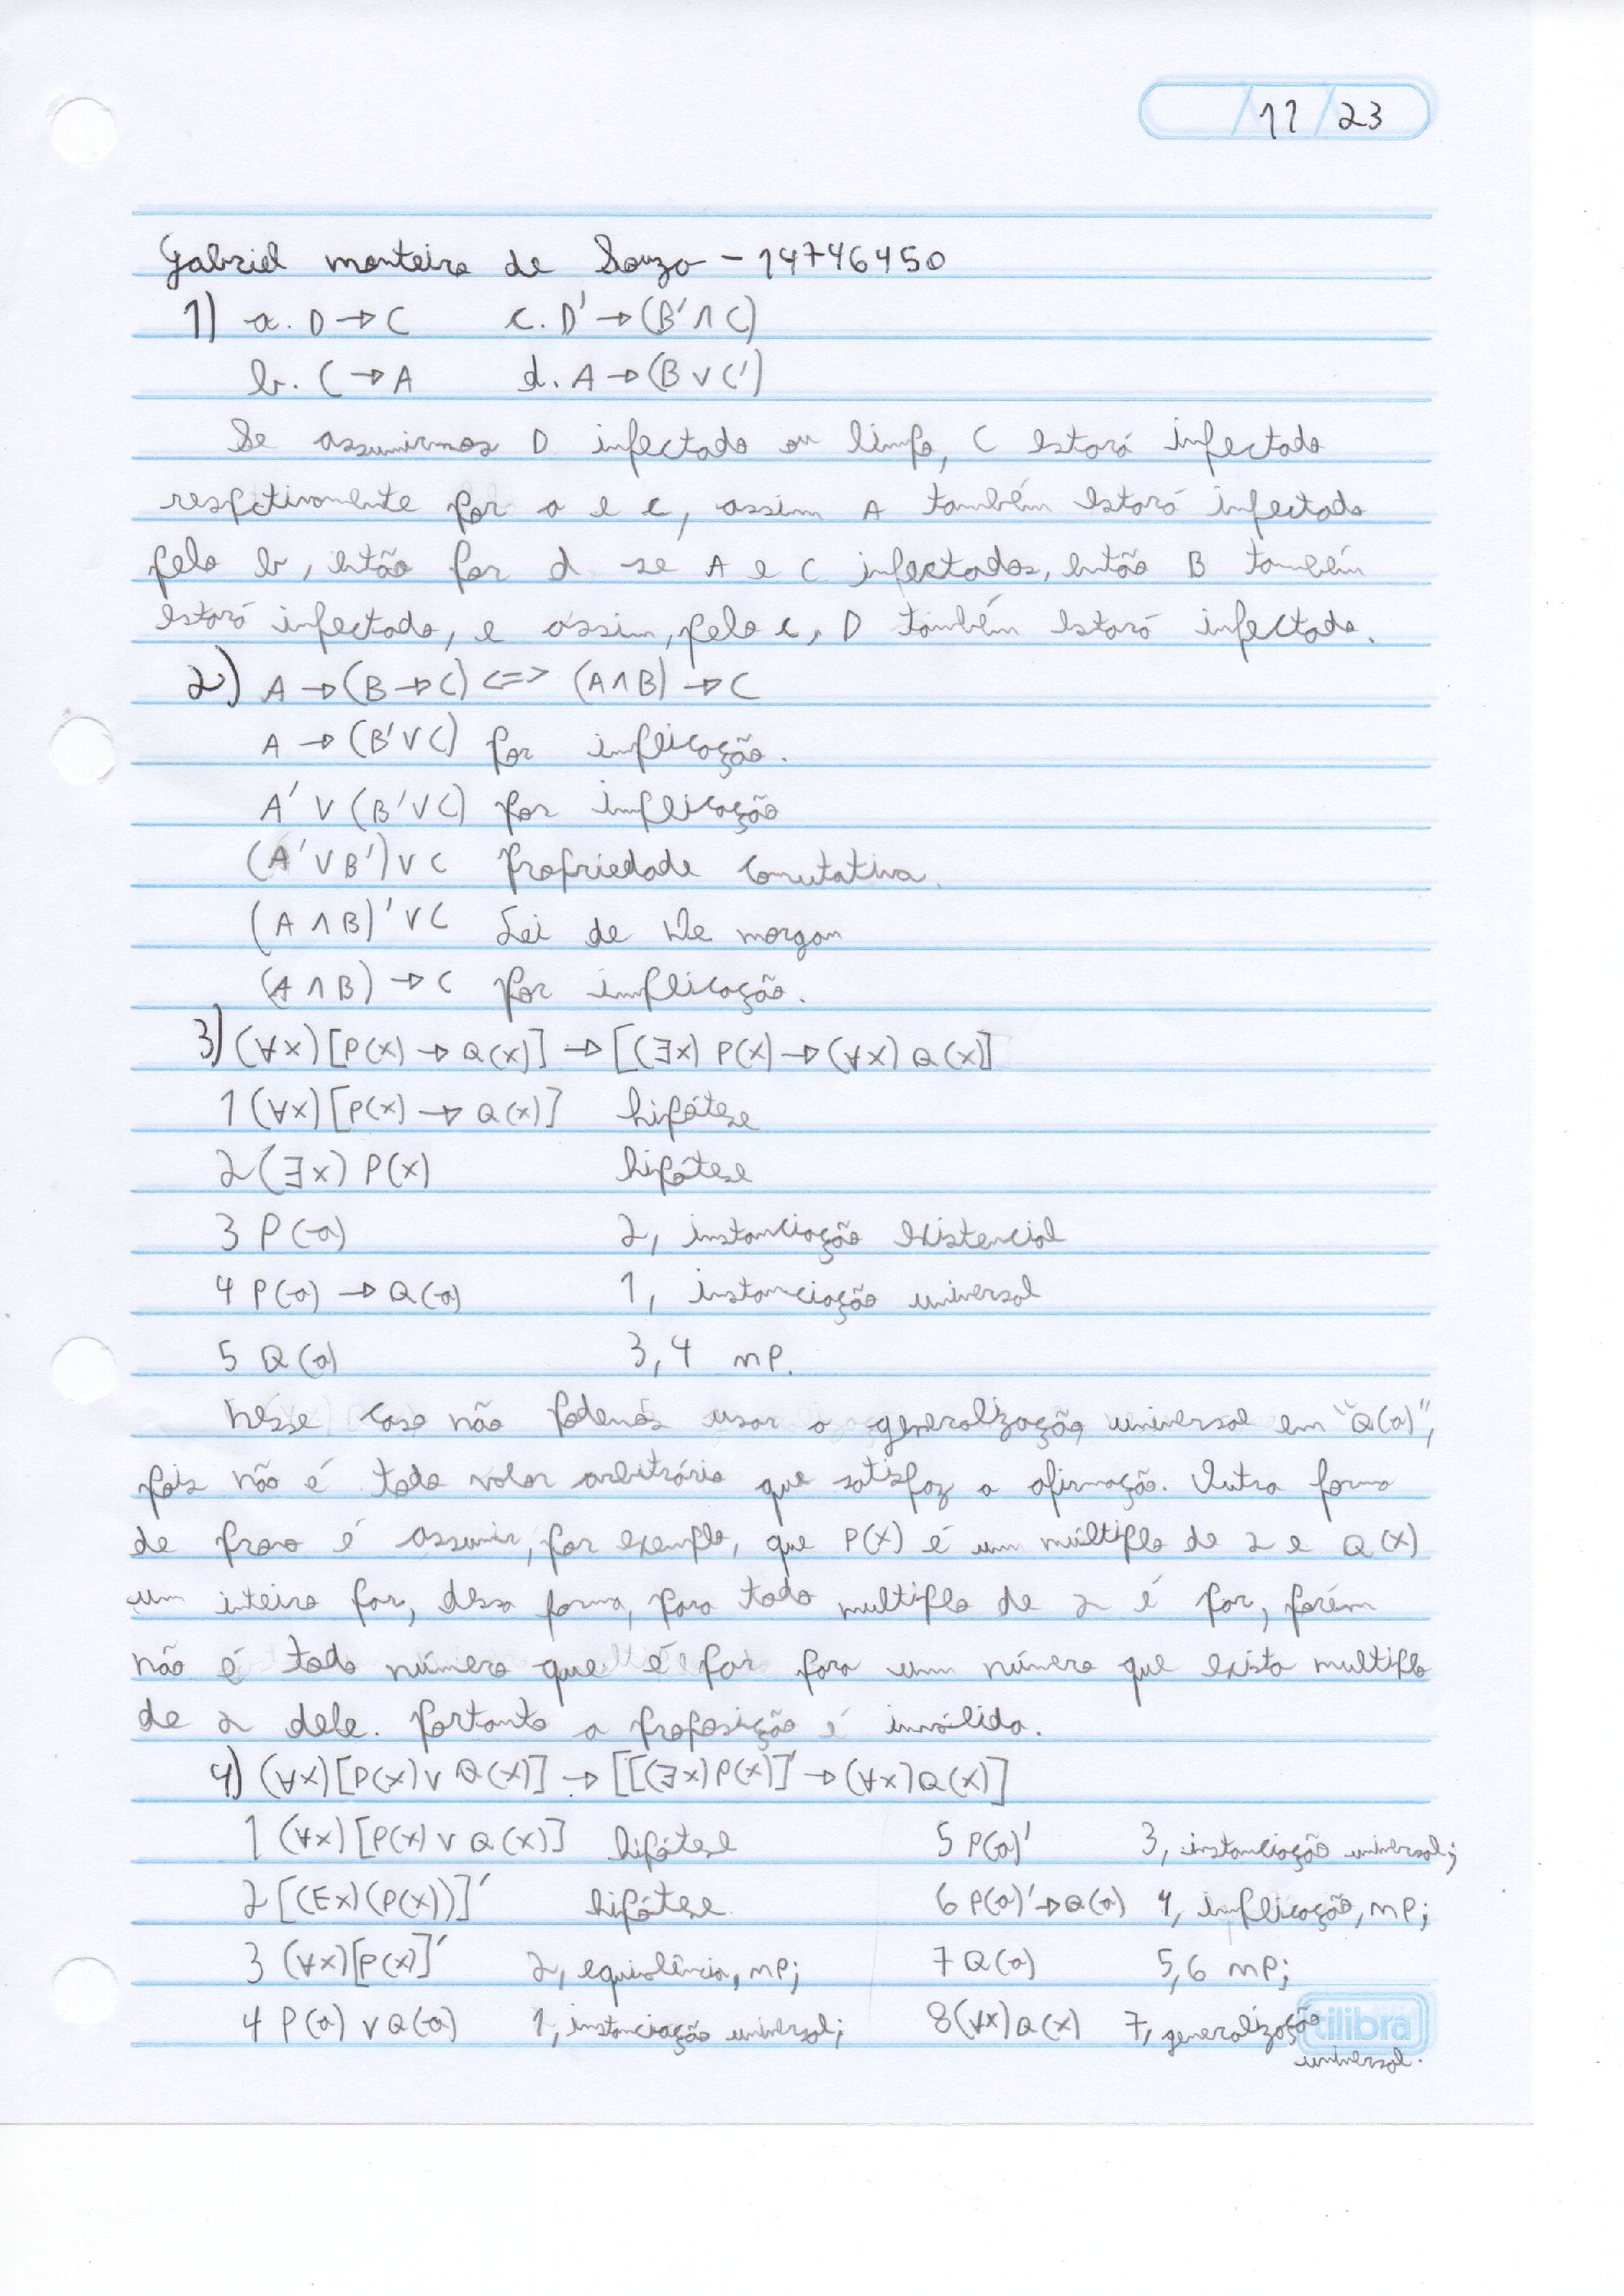 / 11 / 23
Gabriel monteiro de Souza - 14746450
1) a. D → C c. D' → (B' ∧ C)
b. C → A d. A → (B ∨ C')
Se assumirmos D infectado ou limpo, C estará infectado
respctivamente por a e c, assim A também estará infectado
pelo b, então por d se A e C infectados, então B também
estará infectado, e assim, pelo c, D também estará infectado.
2) A → (B → C) <=> (A ∧ B) → C
A → (B' ∨ C) por implicação.
A' ∨ (B' ∨ C) por implicação
(A' ∨ B') ∨ C Propriedade comutativa.
(A ∧ B)' ∨ C Lei de De morgan
(A ∧ B) → C por implicação.
3) (∀x) [P(x) → Q(x)] → [(∃x) P(x) → (∀x) Q(x)]
1 (∀x) [P(x) → Q(x)] hipótese
2 (∃x) P(x) hipótese
3 P(a) 2, instanciação existencial
4 P(a) → Q(a) 1, instanciação universal
5 Q(a) 3, 4 MP.
Nesse caso não podemos usar a generalização universal em "Q(a)",
pois não é todo valor arbitrário que satisfaz a afirmação. Outra forma
de prova é assumir, por exemplo, que P(x) é um múltiplo de 2 e Q(x)
um inteiro par, dessa forma, para todo multiplo de 2 é par, porém
não é todo número que é par para um número que exista multiplo
de 2 dele. Portanto a proposição é inválida.
4) (∀x) [P(x) ∨ Q(x)] → [[(∃x) P(x)]' → (∀x) Q(x)]
1 (∀x) [P(x) ∨ Q(x)] hipótese 5 P(a)' 3, instanciação universal;
2 [(Ex) (P(x))]' hipótese. 6 P(a)' → Q(a) 4, implicação, MP;
3 (∀x) [P(x)]' 2, equivalência, MP; 7 Q(a) 5,6 MP;
4 P(a) ∨ Q(a) 1, instanciação universal; 8 (∀x) Q(x) 7, generalização
universal.
tilibra